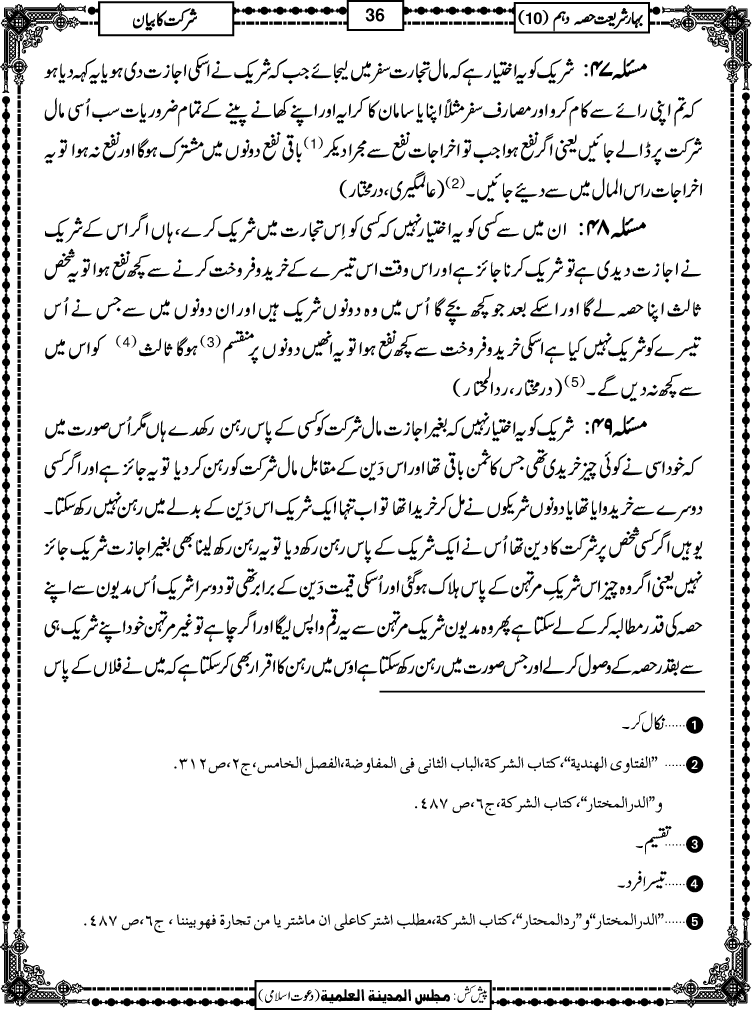 بہارشریعت حصہ دہم (10)
36
شرکت کا بیان
مسئلہ ۴۷: شریک کو یہ اختیار ہے کہ مال تجارت سفر میں لیجائے جب کہ شریک نے اسکی اجازت دی ہو یا یہ کہہ دیا ہو
کہ تم اپنی رائے سے کام کرو اور مصارف سفر مثلاً اپنا یا سامان کا کرایہ اور اپنے کھانے پینے کے تمام ضروریات سب اُسی مال
شرکت پر ڈالے جائیں یعنی اگر نفع ہوا جب تو اخراجات نفع سے مجرا دیکر(1) باقی نفع دونوں میں مشترک ہوگا اور نفع نہ ہوا تو یہ
اخراجات راس المال میں سے دیئے جائیں۔(2) (عالمگیری، درمختار)
مسئلہ ۴۸: ان میں سے کسی کو یہ اختیار نہیں کہ کسی کو اِس تجارت میں شریک کرے، ہاں اگر اس کے شریک
نے اجازت دیدی ہے تو شریک کرنا جائز ہے اور اس وقت اس تیسرے کے خرید و فروخت کرنے سے کچھ نفع ہوا تو یہ شخص
ثالث اپنا حصہ لے گا اور اسکے بعد جو کچھ بچے گا اُس میں وہ دونوں شریک ہیں اور ان دونوں میں سے جس نے اُس
تیسرے کو شریک نہیں کیا ہے اسکی خرید و فروخت سے کچھ نفع ہوا تو یہ انھیں دونوں پر منقسم(3) ہوگا ثالث(4) کو اس میں
سے کچھ نہ دیں گے۔(5) (درمختار، ردالمحتار)
مسئلہ ۴۹: شریک کو یہ اختیار نہیں کہ بغیر اجازت مال شرکت کو کسی کے پاس رہن رکھدے ہاں مگر اُس صورت میں
کہ خود اسی نے کوئی چیز خریدی تھی جس کا ثمن باقی تھا اور اس دَین کے مقابل مال شرکت کو رہن کر دیا تو یہ جائز ہے اور اگر کسی
دوسرے سے خریدوایا تھا یا دونوں شریکوں نے مل کر خریدا تھا تو اب تنہا ایک شریک اس دَین کے بدلے میں رہن نہیں رکھ سکتا۔
یوہیں اگر کسی شخص پر شرکت کا دین تھا اُس نے ایک شریک کے پاس رہن رکھ دیا تو یہ رہن رکھ لینا بھی بغیر اجازت شریک جائز
نہیں یعنی اگر وہ چیز اس شریکِ مرتہن کے پاس ہلاک ہوگئی اور اُسکی قیمت دَین کے برابر تھی تو دوسرا شریک اُس مدیون سے اپنے
حصہ کی قدر مطالبہ کر کے لے سکتا ہے پھر وہ مدیون شریک مرتہن سے یہ رقم واپس لیگا اور اگر چاہے تو غیر مرتہن خود اپنے شریک ہی
سے بقدر حصہ کے وصول کر لے اور جس صورت میں رہن رکھ سکتا ہے اوس میں رہن کا اقرار بھی کر سکتا ہے کہ میں نے فلاں کے پاس
1 ......نکال کر۔
2 ......"الفتاوی الھندیة"، کتاب الشرکة، الباب الثانی فی المفاوضة، الفصل الخامس، ج۲، ص۳۱۲.
و"الدرالمختار"، کتاب الشرکة، ج۶، ص ۴۸۷.
3 ......تقسیم۔
4 ......تیسرا فرد۔
5 ......"الدرالمختار" و"ردالمحتار"، کتاب الشرکة، مطلب اشترکاعلی ان ماشتر یا من تجارة فھوبیننا، ج۶، ص ۴۸۷.
پیش کش: مجلس المدینة العلمیة (دعوت اسلامی)